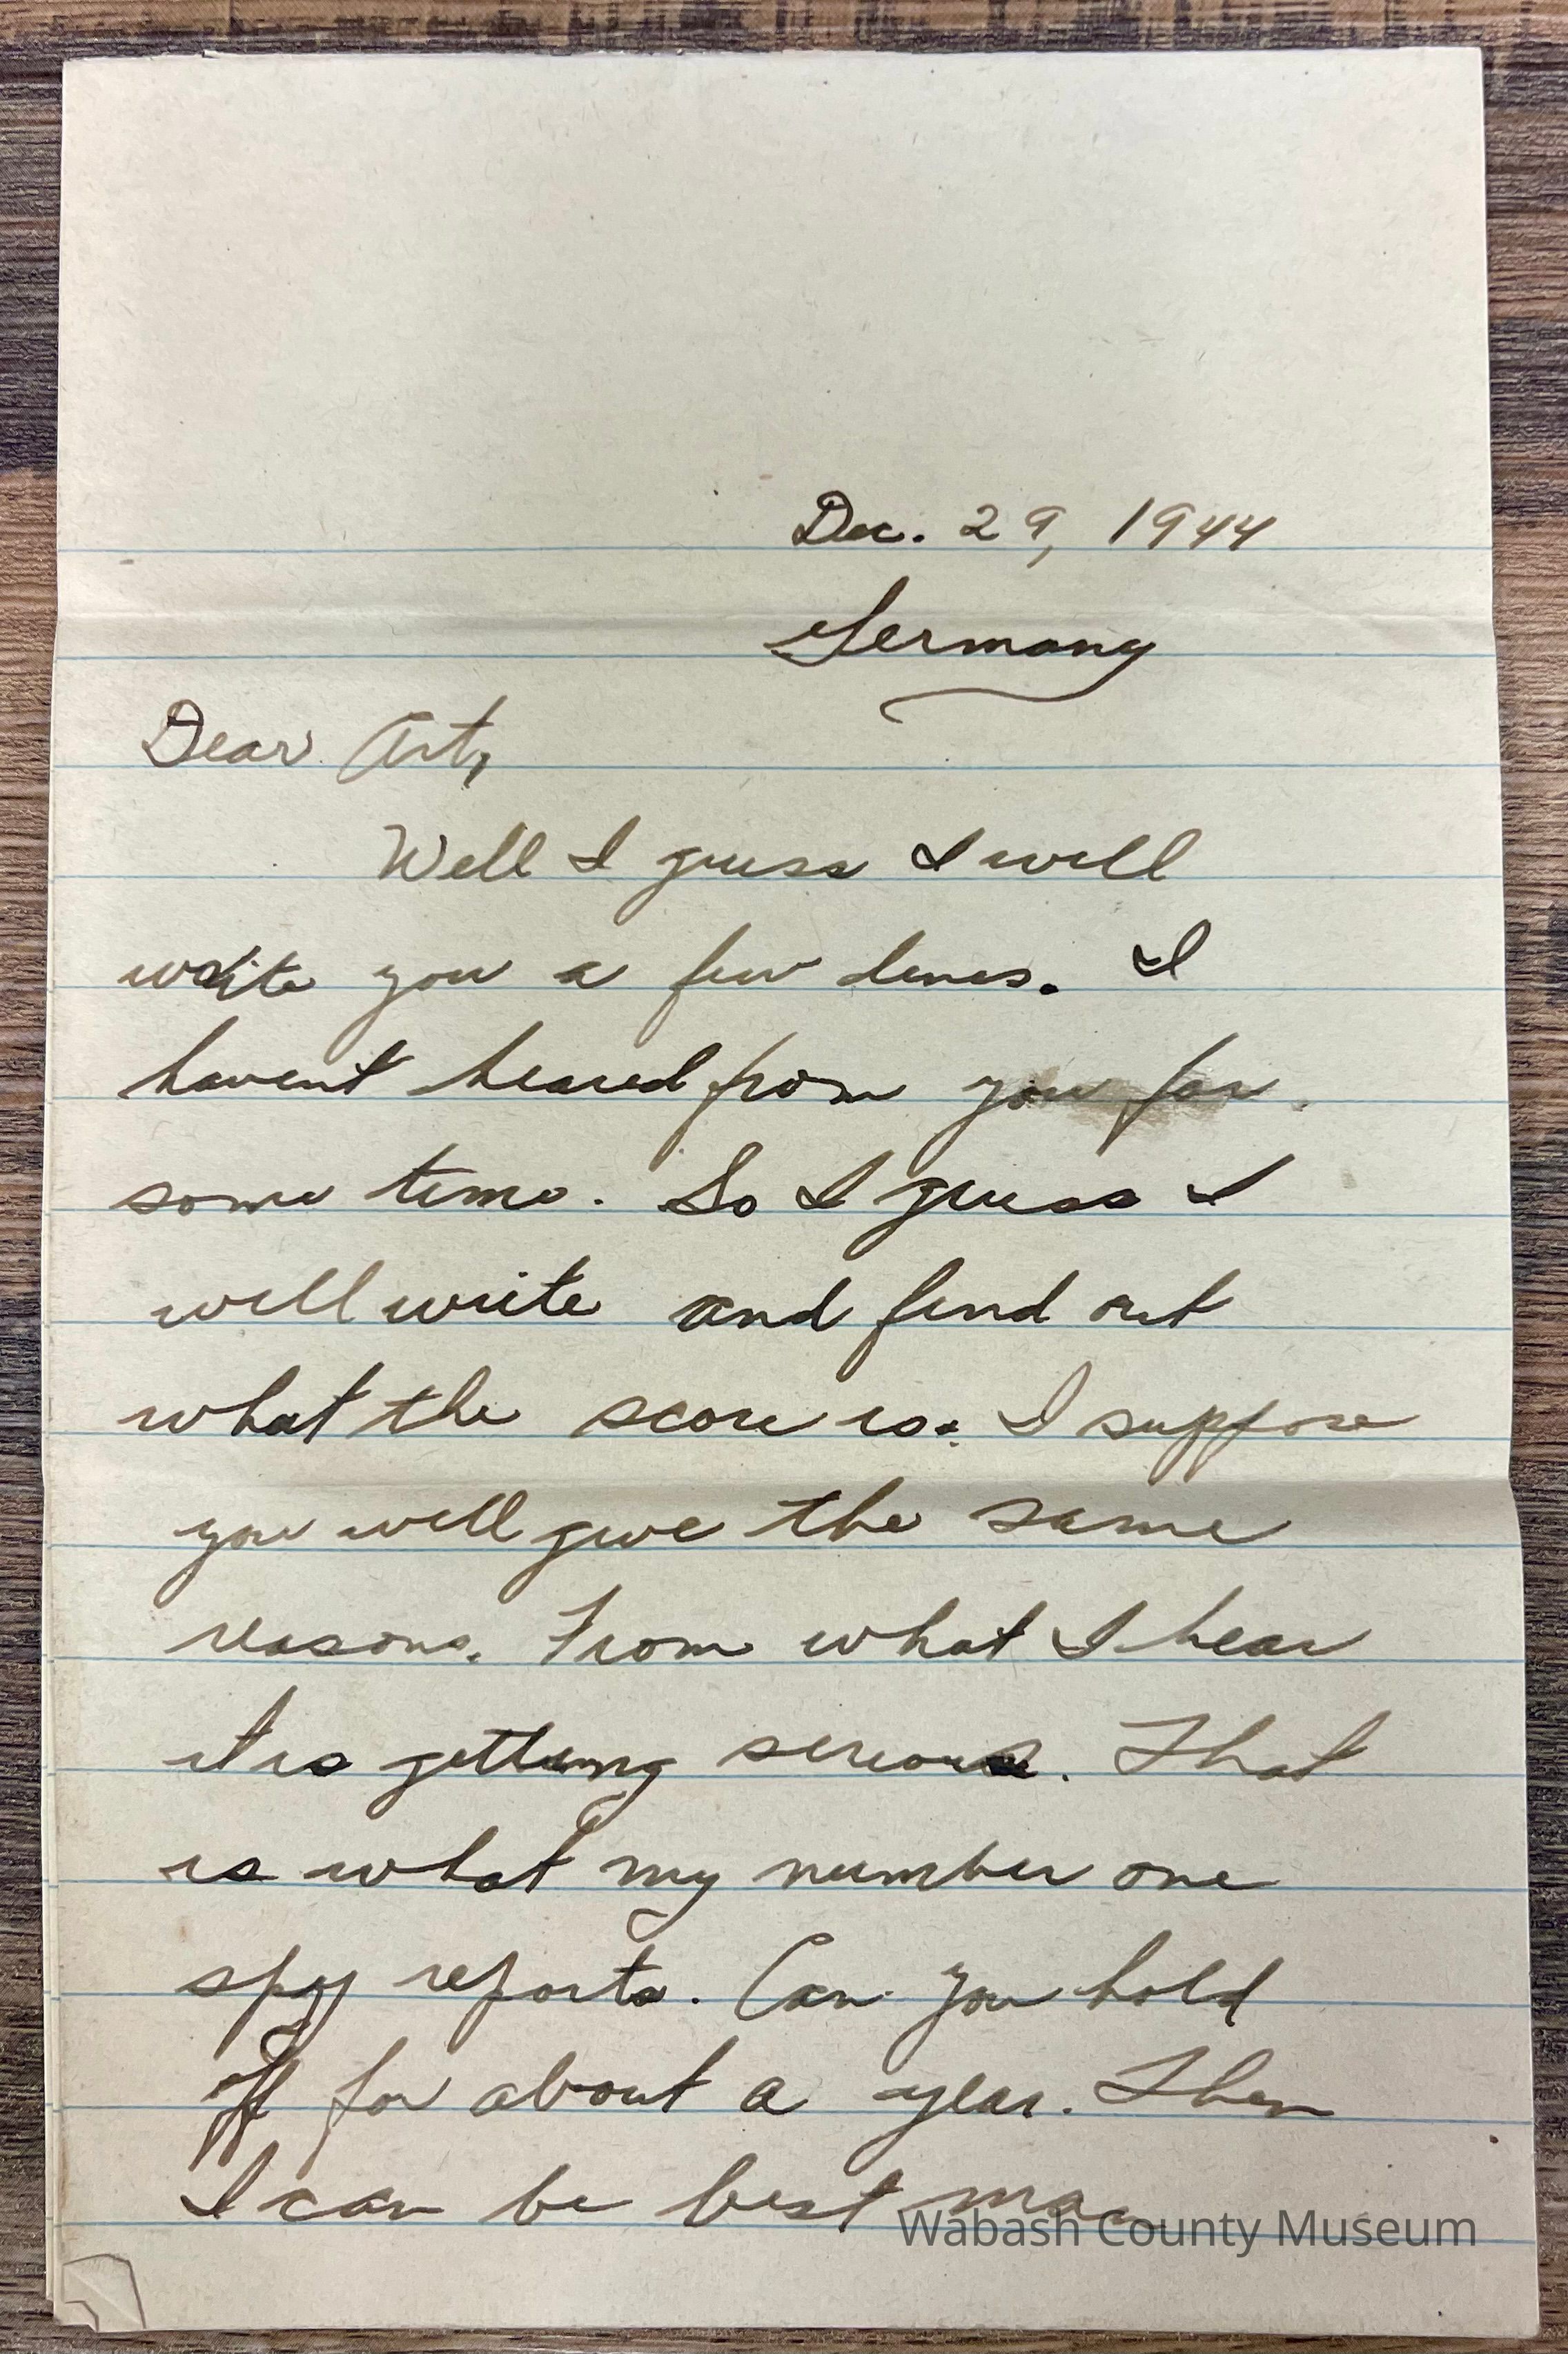 Dec. 29, 1944
Germany
Dear Art,
Well I guess I will
write you a few lines. I
havent heared from you for
some time. So I guess I
will write and find out
what the score is. I suppose
you will give the same
reasons. From what I hear
it is getting serious. That
is what my number one
spy reports. Can you hold
off for about a year. Then
I can be best man
Wabash County Museum